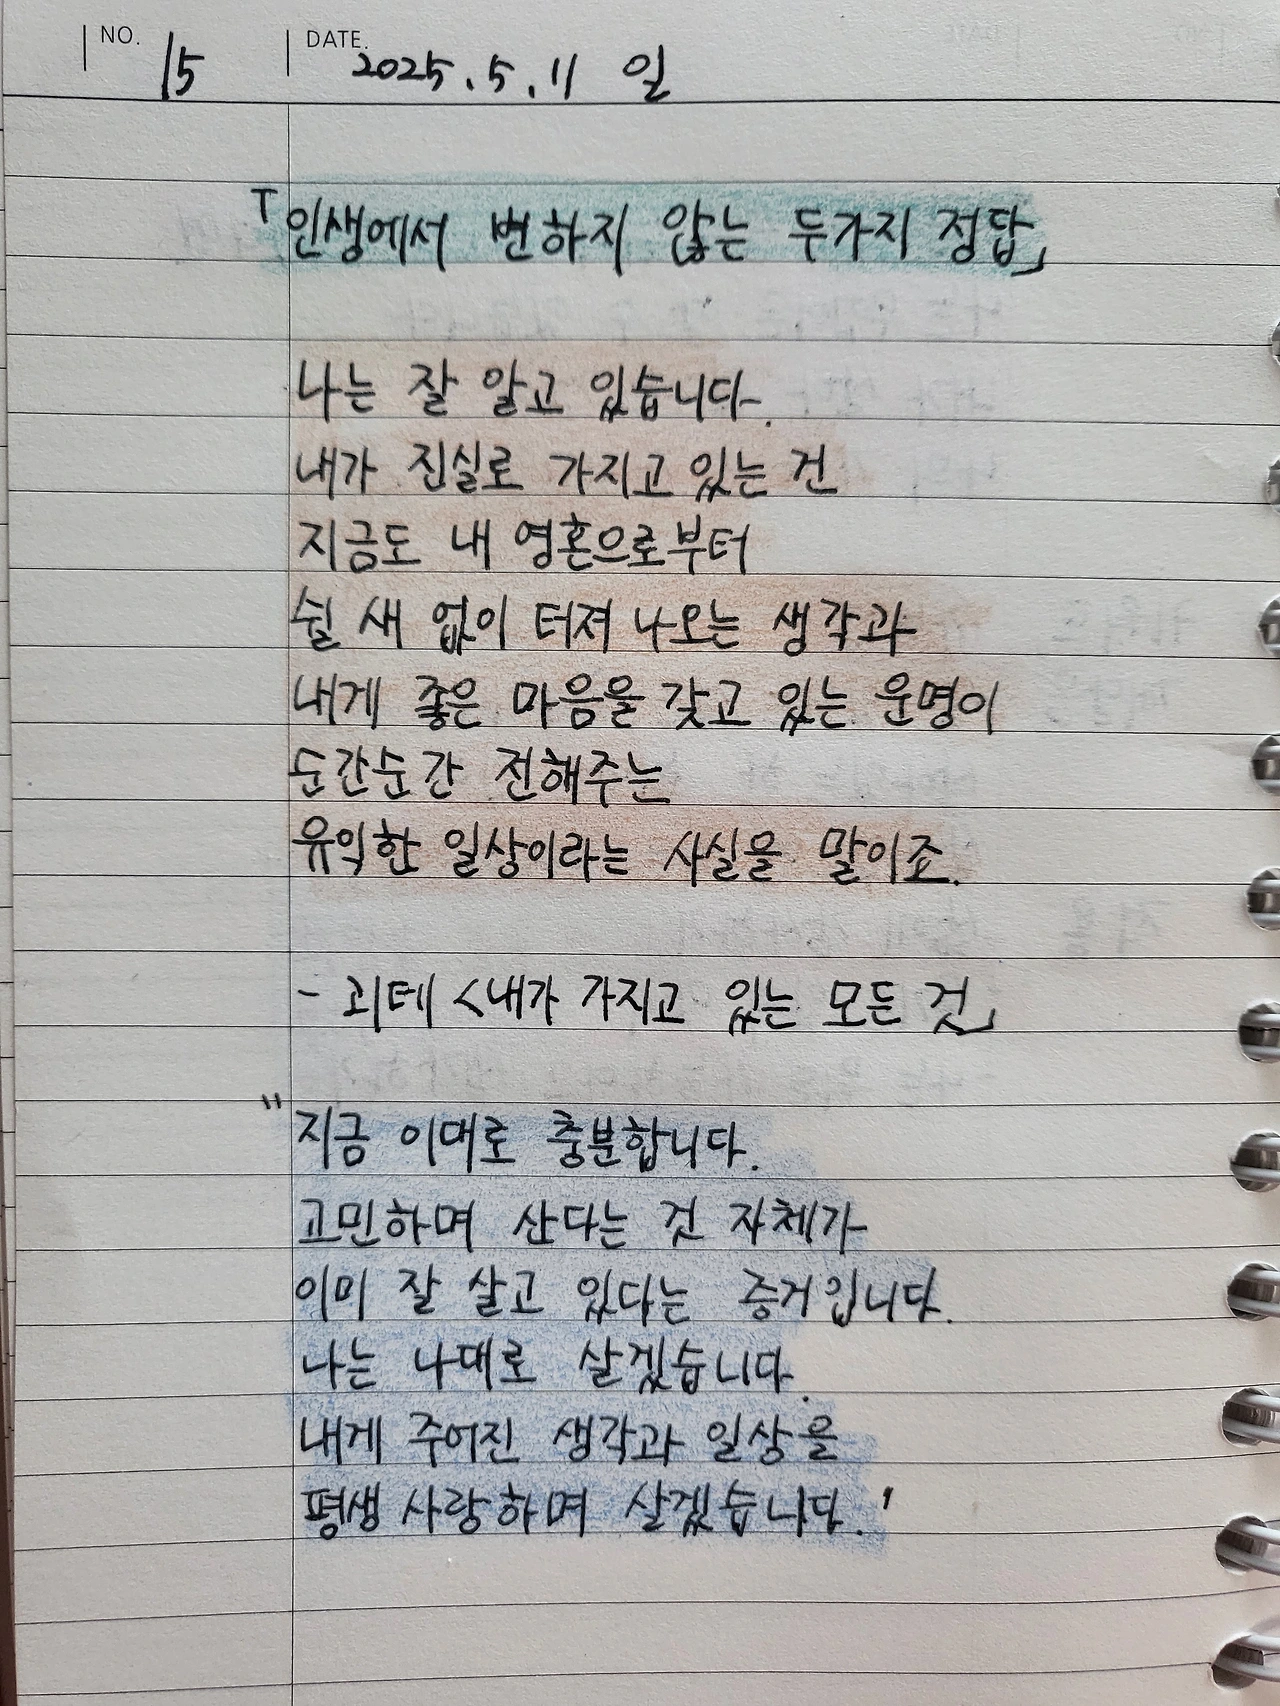 NO. 15 DATE. 2025. 5. 11 일
「인생에서 변하지 않는 두가지 정답」
나는 잘 알고 있습니다.
내가 진실로 가지고 있는 건
지금도 내 영혼으로부터
쉴 새 없이 터져 나오는 생각과
내게 좋은 마음을 갖고 있는 운명이
순간순간 전해주는
유익한 일상이라는 사실을 말이죠.
- 괴테 <내가 가지고 있는 모든 것」
"지금 이대로 충분합니다.
고민하며 산다는 것 자체가
이미 잘 살고 있다는 증거입니다.
나는 나대로 살겠습니다.
내게 주어진 생각과 일상을
평생 사랑하며 살겠습니다.'